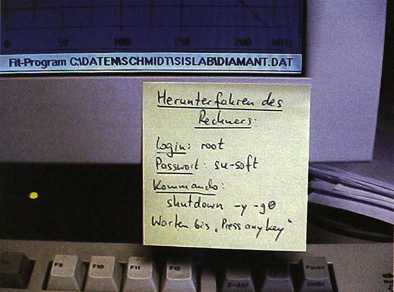 50 100 150 200
Fit-Program C:\DATEN\SCHMIDT\SISLAB\DIAMANT.DAT
Herunterfahren des
Rechners:
Login: root
Passwort: su-soft
Kommando:
shutdown -y -g0
Warten bis „Press any key"
F9 F10 F11 F12